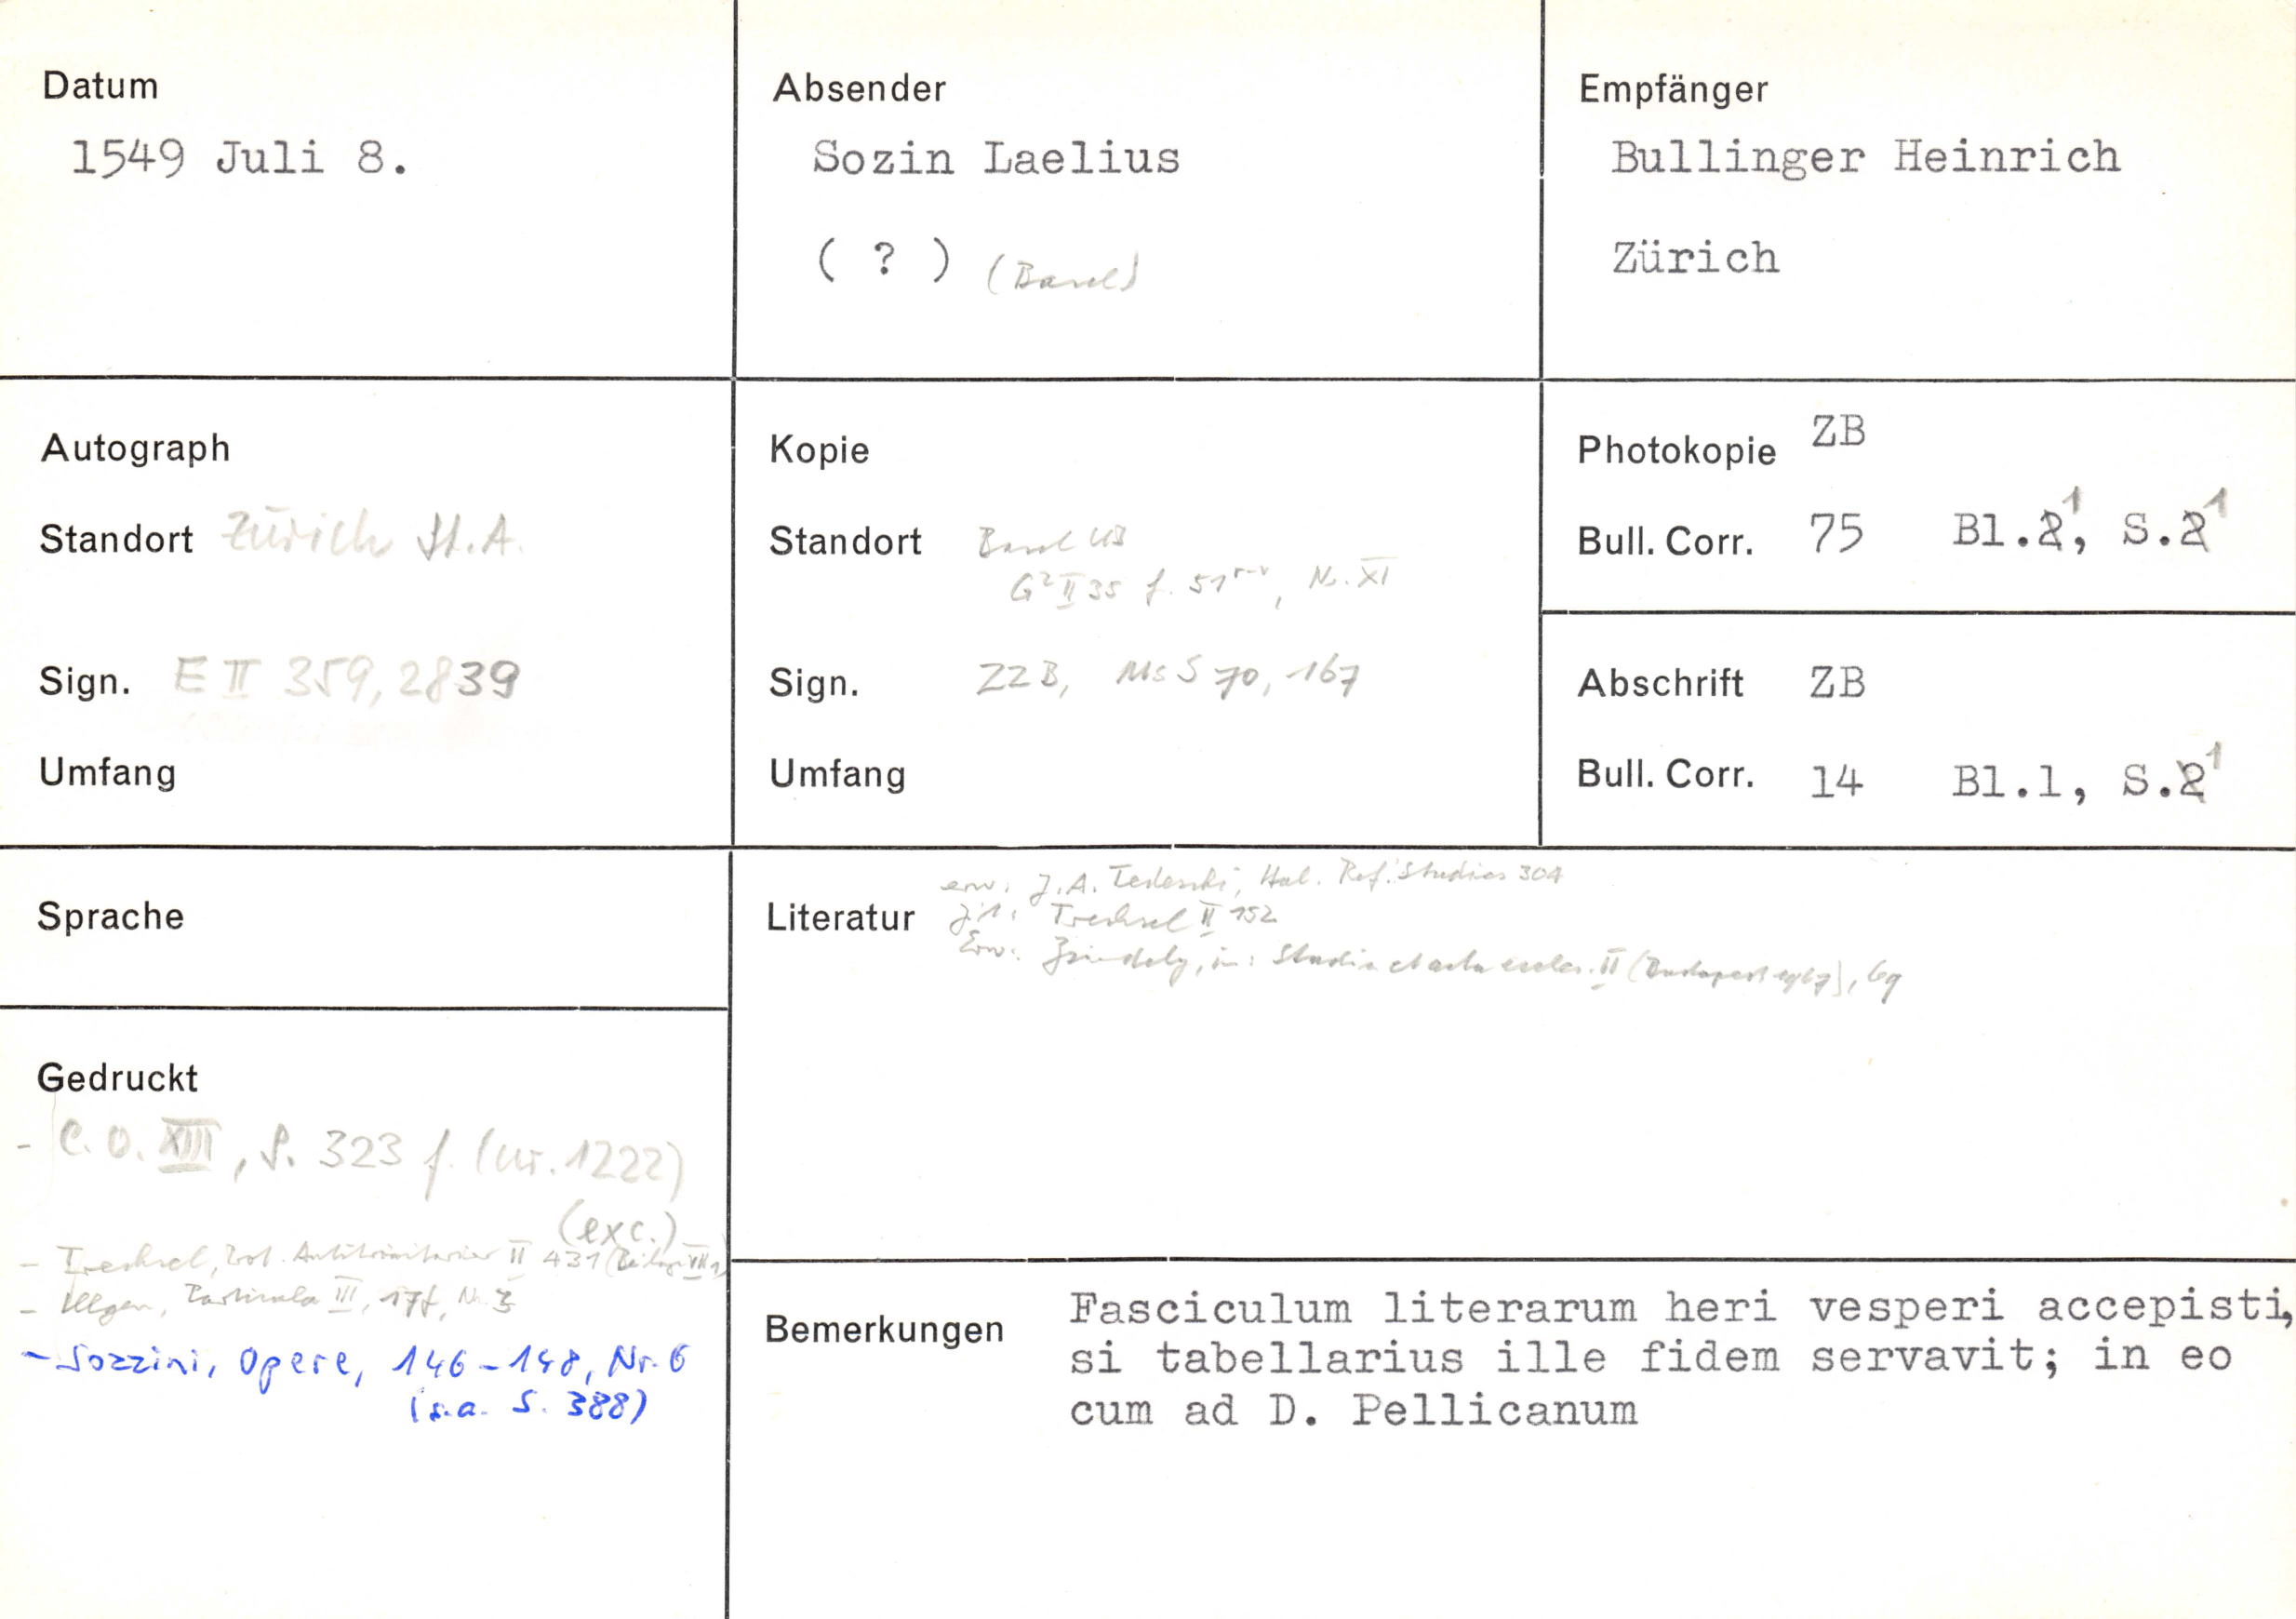 Datum
1549 Juli 8.
Absender
Sozin Laelius
( ? ) (Basel)
Empfänger
Bullinger Heinrich
Zürich
Autograph
Standort Zürich St.A.
Sign. E II 359, 2839
Umfang
Kopie
Standort Basel UB
G² II 35 f. 51 r-v, Nr. XI
Sign. ZZB, Ms S 70, 167
Umfang
Photokopie ZB
Bull. Corr. 75 Bl.1, S.1
Abschrift ZB
Bull. Corr. 14 Bl.1, S.1
Sprache
Literatur
erw. J.A. Tedeschi, Ital. Ref. Studies 304
Trechsel II 152
Erw: in: Studia et acta eccles. II (Budapest 1967), 69
Gedruckt
- C.O. XIII, S. 323 f. (Nr. 1222)
(exc.)
- Trechsel, Prot. Antitrinitarier II 431 (Beilage VII 1)
- Illgen, Particula III, 17f, Nr. 3
- Sozzini, Opere, 146-148, Nr. 6
(s.a. S. 388)
Bemerkungen
Fasciculum literarum heri vesperi accepisti,
si tabellarius ille fidem servavit; in eo
cum ad D. Pellicanum